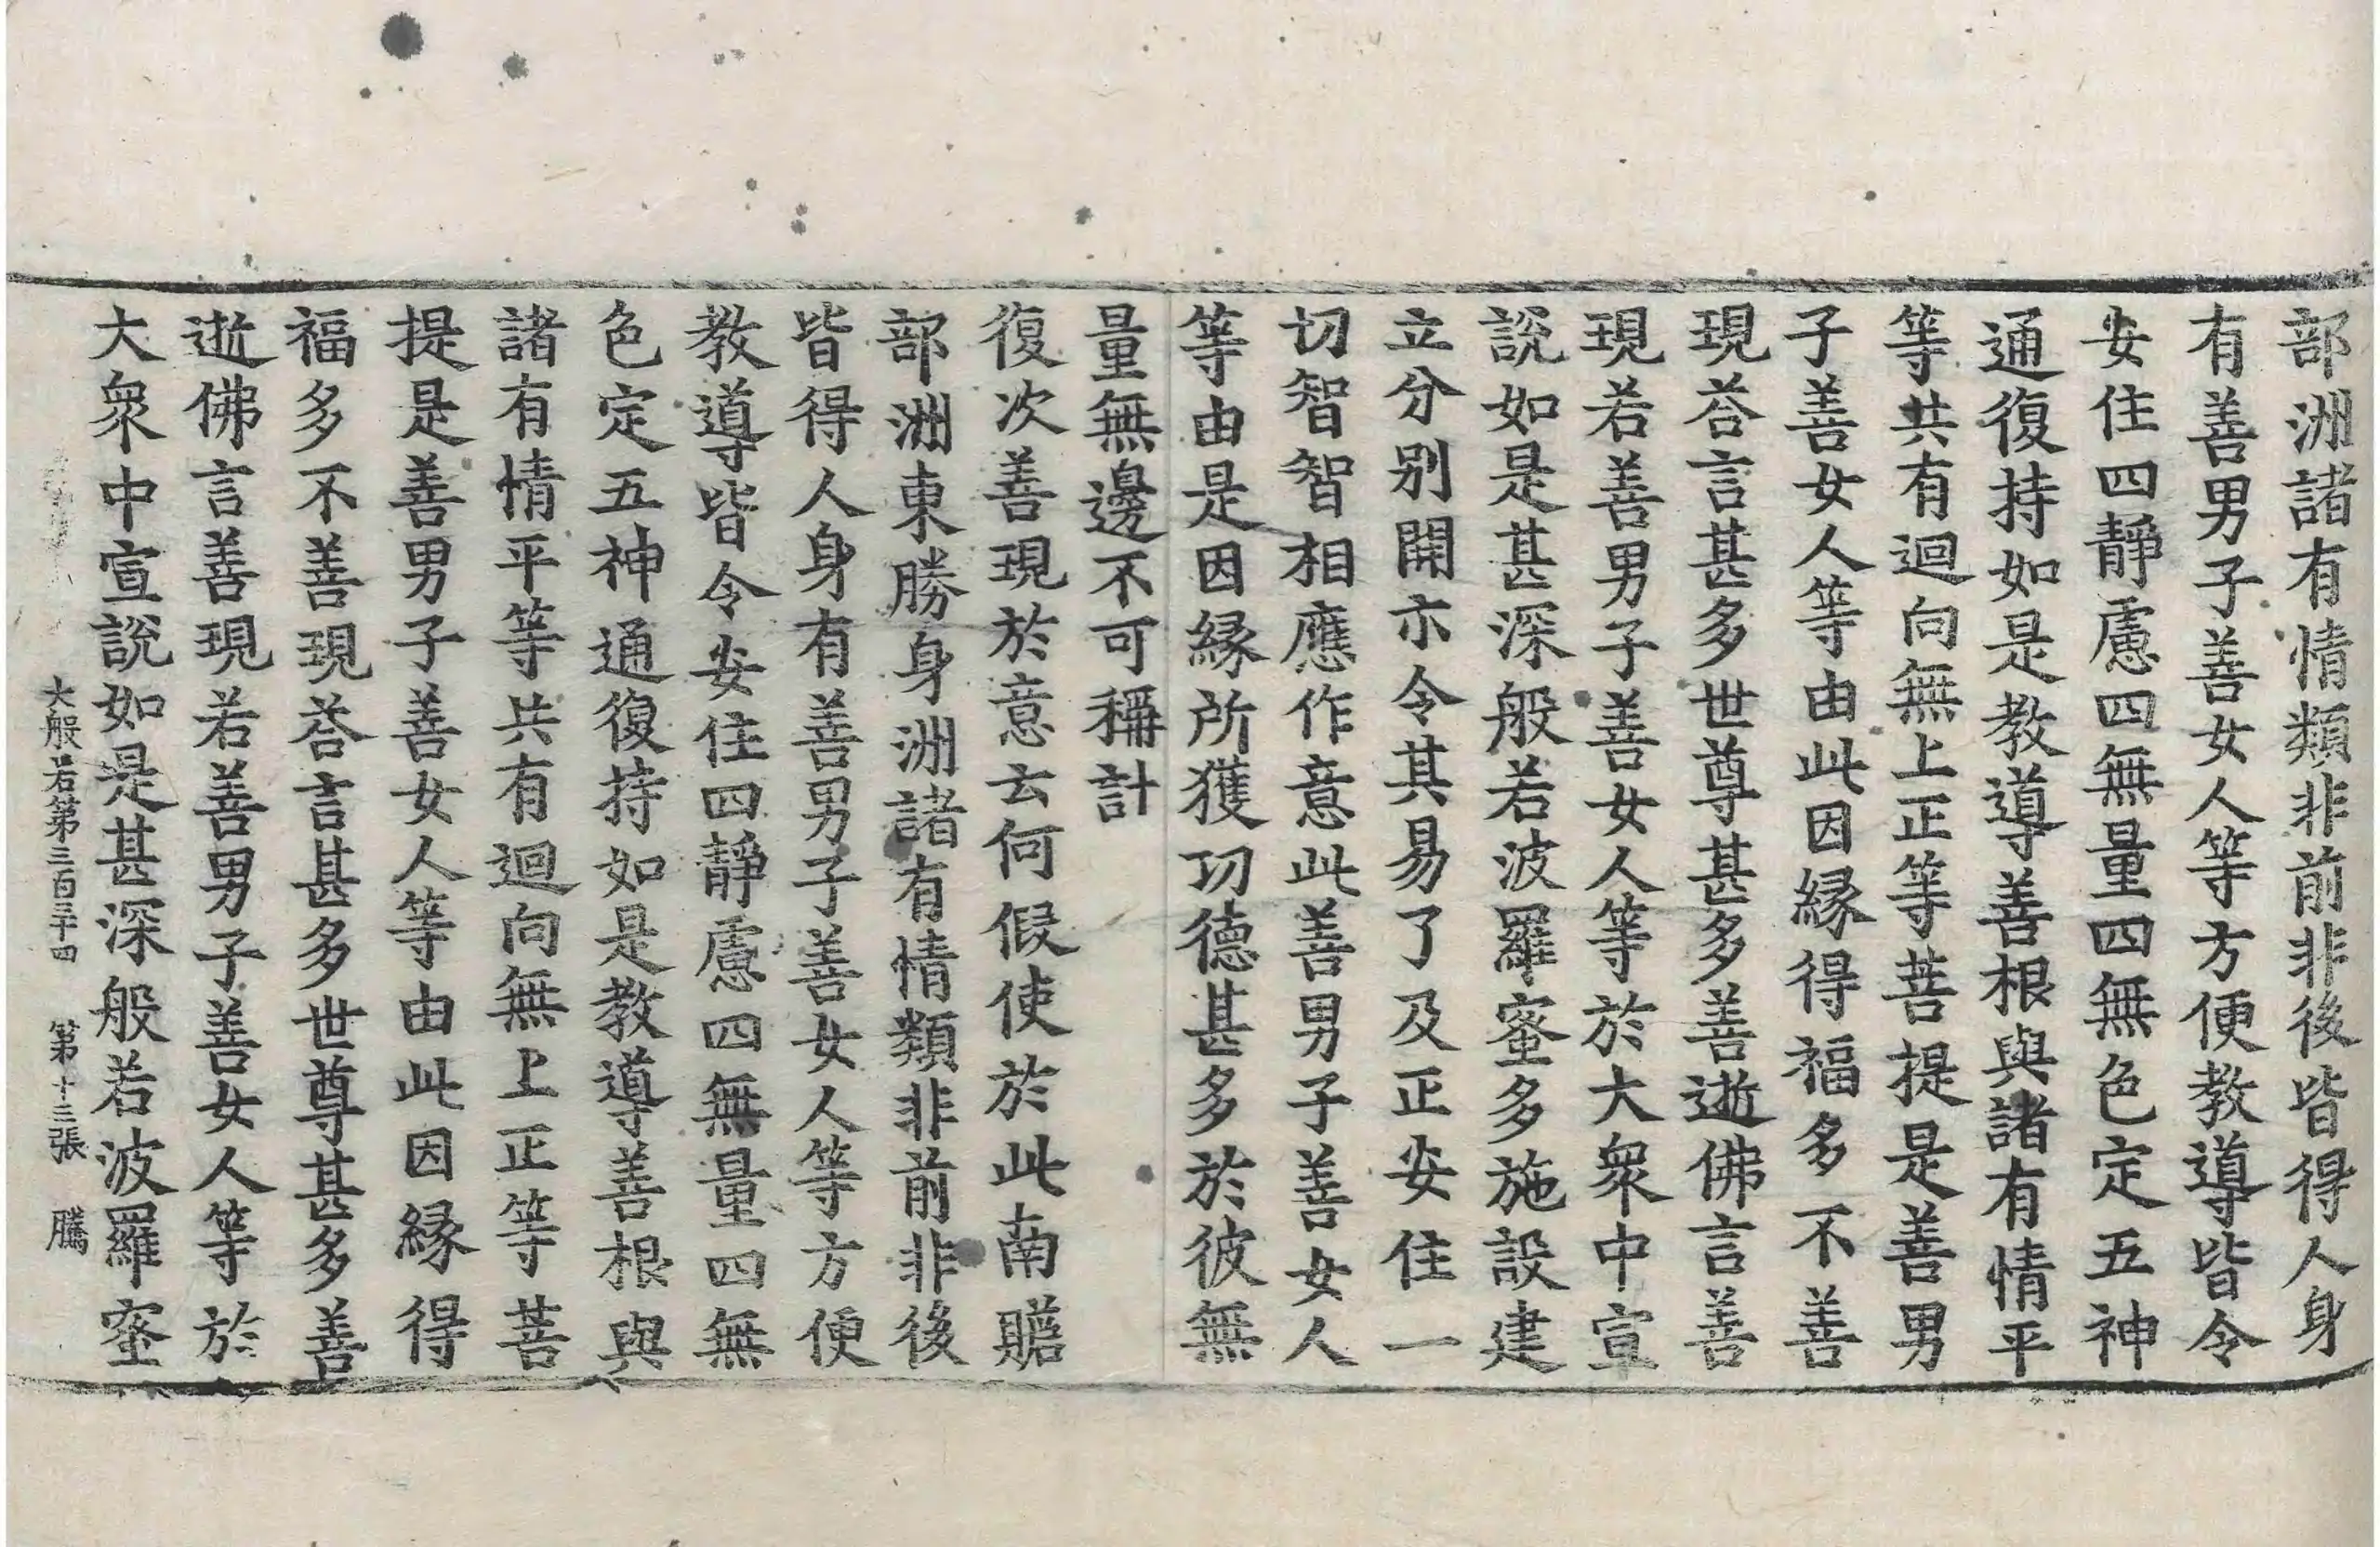 部洲諸有情類非前非後皆得人身
有善男子善女人等方便教導皆令
安住四靜慮四無量四無色定五神
通復持如是教導善根與諸有情平
等共有迴向無上正等菩提是善男
子善女人等由此因緣得福多不善
現荅言甚多世尊甚多善逝佛言善
現若善男子善女人等於大衆中宣
說如是甚深般若波羅蜜多施設建
立分别開示令其易了及正安住一
切智智相應作意此善男子善女人
等由是因緣所獲功德甚多於彼無
量無邊不可稱計
復次善現於意云何假使於此南贍
部洲東勝身洲諸有情類非前非後
皆得人身有善男子善女人等方便
教導皆令安住四靜慮四無量四無
色定五神通復持如是教導善根與
諸有情平等共有迴向無上正等菩
提是善男子善女人等由此因緣得
福多不善現荅言甚多世尊甚多善
逝佛言善現若善男子善女人等於
大衆中宣說如是甚深般若波羅蜜
大般若第三百三十四 第十三張 騰